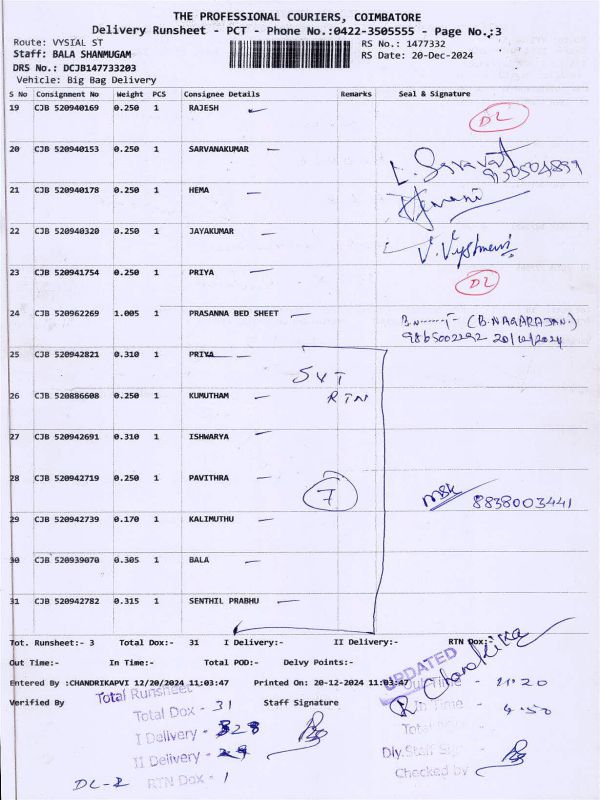 THE PROFESSIONAL COURIERS, COIMBATORE
Delivery Runsheet - PCT - Phone No.:0422-3505555 - Page No.:3
Route: VYSIAL ST RS No.: 1477332
Staff: BALA SHANMUGAM RS Date: 20-Dec-2024
DRS No.: DCJB147733203
Vehicle: Big Bag Delivery
S No Consignment No Weight PCS Consignee Details Remarks Seal & Signature
19 CJB 520940169 0.250 1 RAJESH DL
20 CJB 520940153 0.250 1 SARVANAKUMAR
21 CJB 520940178 0.250 1 HEMA
22 CJB 520940320 0.250 1 JAYAKUMAR
23 CJB 520941754 0.250 1 PRIYA DL
24 CJB 520962269 1.005 1 PRASANNA BED SHEET (B.NAGARAJAN.)
9865002292 20/12/2024
25 CJB 520942821 0.310 1 PRIYA
SVT
RTN
26 CJB 520886608 0.250 1 KUMUTHAM
27 CJB 520942691 0.310 1 ISHWARYA
28 CJB 520942719 0.250 1 PAVITHRA 7 8838003441
29 CJB 520942739 0.170 1 KALIMUTHU
30 CJB 520939070 0.305 1 BALA
31 CJB 520942782 0.315 1 SENTHIL PRABHU
Tot. Runsheet:- 3 Total Dox:- 31 I Delivery:- II Delivery:- RTN Dox:-
Out Time:- In Time:- Total POD:- Delvy Points:-
Entered By :CHANDRIKAPVI 12/20/2024 11:03:47 Printed On: 20-12-2024 11:03:47
UPDATED
Verified By Staff Signature
Total Runsheet
Out Time - 11.20
Total Dox - 31
In Time - 4.50
I Delivery - 28
II Delivery -
Dly. Staff Sign -
DL-2 RTN Dox - 1
Checked by